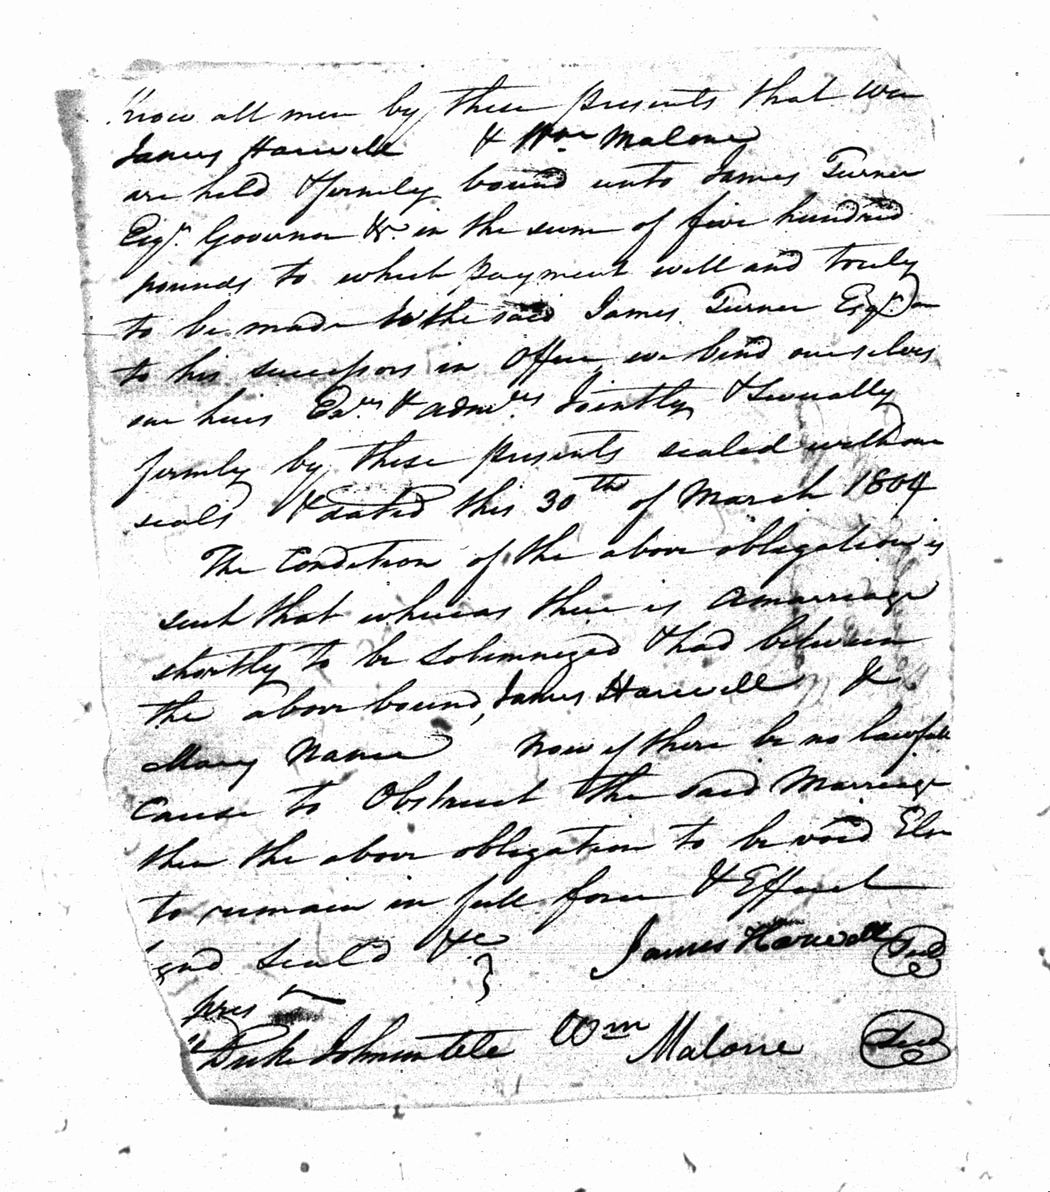 Know all men by these presents that we
James Harwell & Wm Malone
are held & firmly bound unto James Turner
Esqr. Governor &c. in the sum of five hundred
pounds to which payment well and truly
to be made to the said James Turner Esqr. or
to his successors in office we bind ourselves
our heirs Exrs & admrs Jointly & Severally
firmly by these presents sealed with our
seals & dated this 30th of March 1804
The Condition of the above obligation is
such that whereas there is a marriage
shortly to be Solemnized & had between
the above bound, James Harwell &
Mary Nance Now if there be no lawfull
Cause to Obstruct the said Marriage
then the above obligation to be void Else
to remain in full force & Effect
Signd Seald &c James Harwell Seal
pres
Duke Johnston Wm Malone Seal